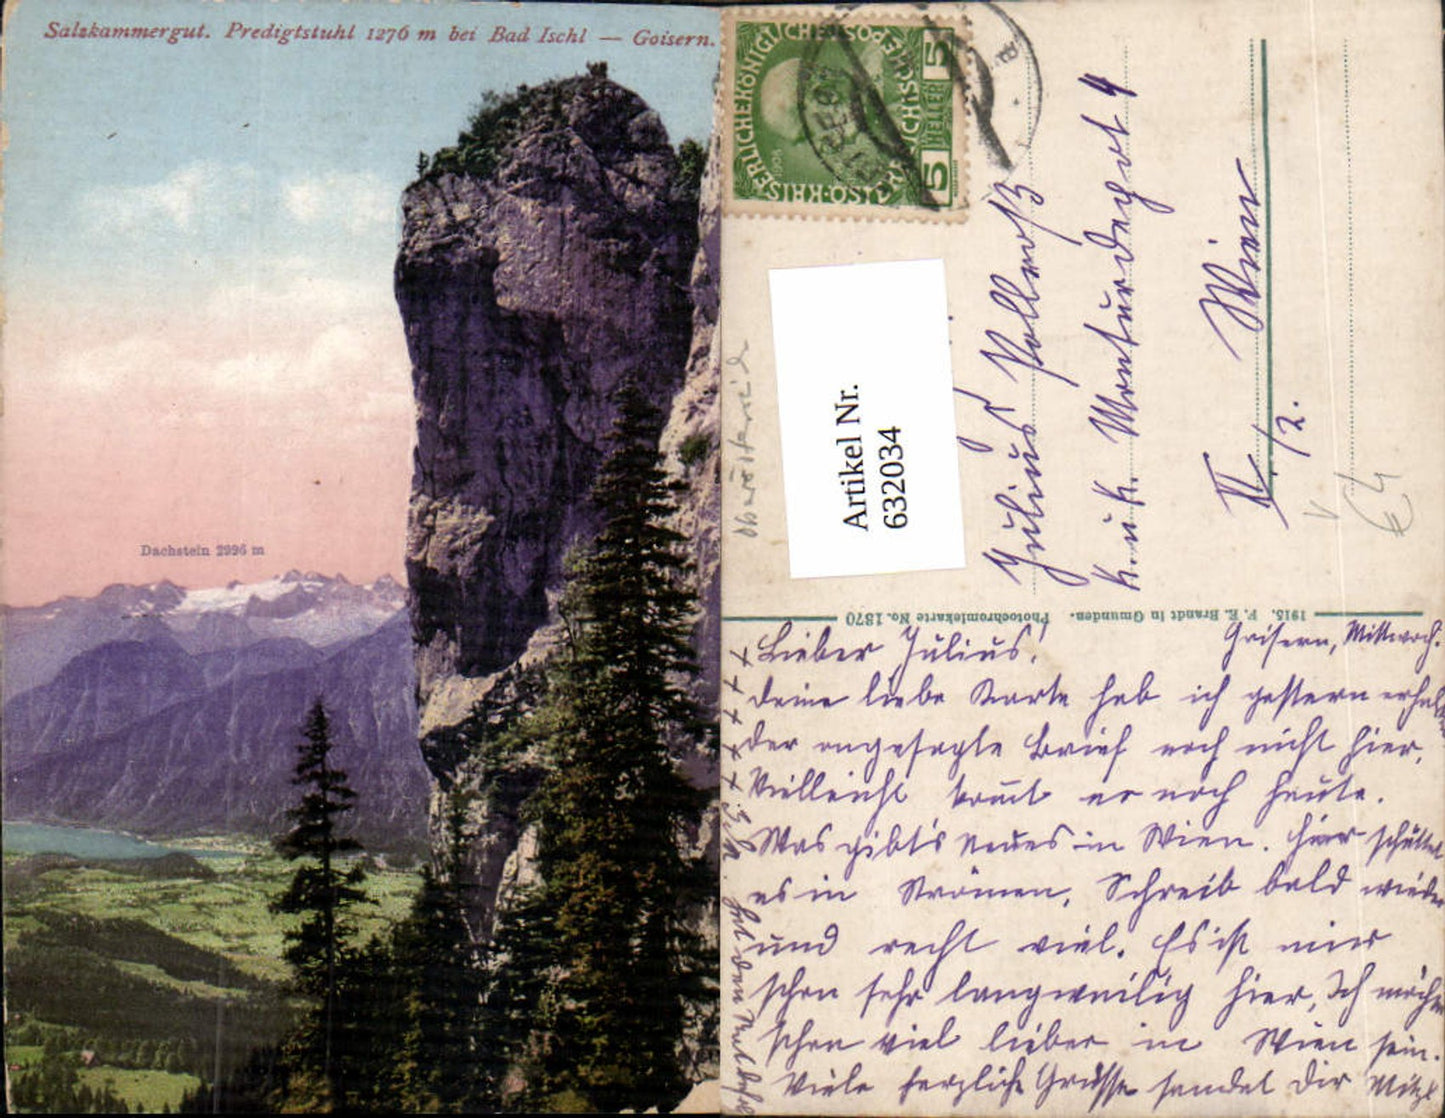 Salzkammergut. Predigtstuhl 1276 m bei Bad Ischl — Goisern.
Dachstein 2996 m
KAISERLICHE KÖNIGLICHE
5 HELLER 5
1908
Oberösterreich
Artikel Nr.
632034
Julius Vollroß
K. u. K. Monturdepot 4
Wien
II/2.
V
€ 4
Photochromiekarte No. 1870
1915. F. E. Brandt in Gmunden.
Goisern, Mittwoch.
Lieber Julius!
Deine liebe Karte hab ich gestern erhalten
der angesagte Brief noch nicht hier,
Vielleicht kommt er noch heute.
Was gibt's Neues in Wien. Hier schüttet
es in Strömen, Schreib bald wieder
und recht viel. Es ist mir
schon sehr langweilig hier, Ich möchte
schon viel lieber in Wien sein.
Viele herzliche Grüsse sendet Dir Mitzl